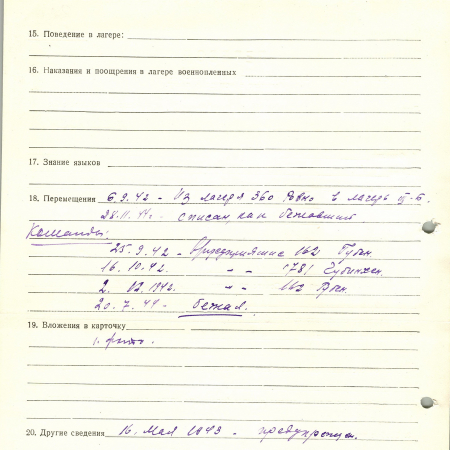 15. Поведение в лагере:
16. Наказания и поощрения в лагере военнопленных
17. Знание языков
18. Перемещения 6.9.42 - Из лагеря 360 Ровно в лагерь
28.11.44. списан, как бежавший
Команды:
25.9.42 - Предприятие 162 Губен.
16.10.42. - " -
2. 1942. - " - 162 Губен.
20.7.44 - бежал.
19. Вложения в карточку
1. фото.
20. Другие сведения 16. Мая 1943 -